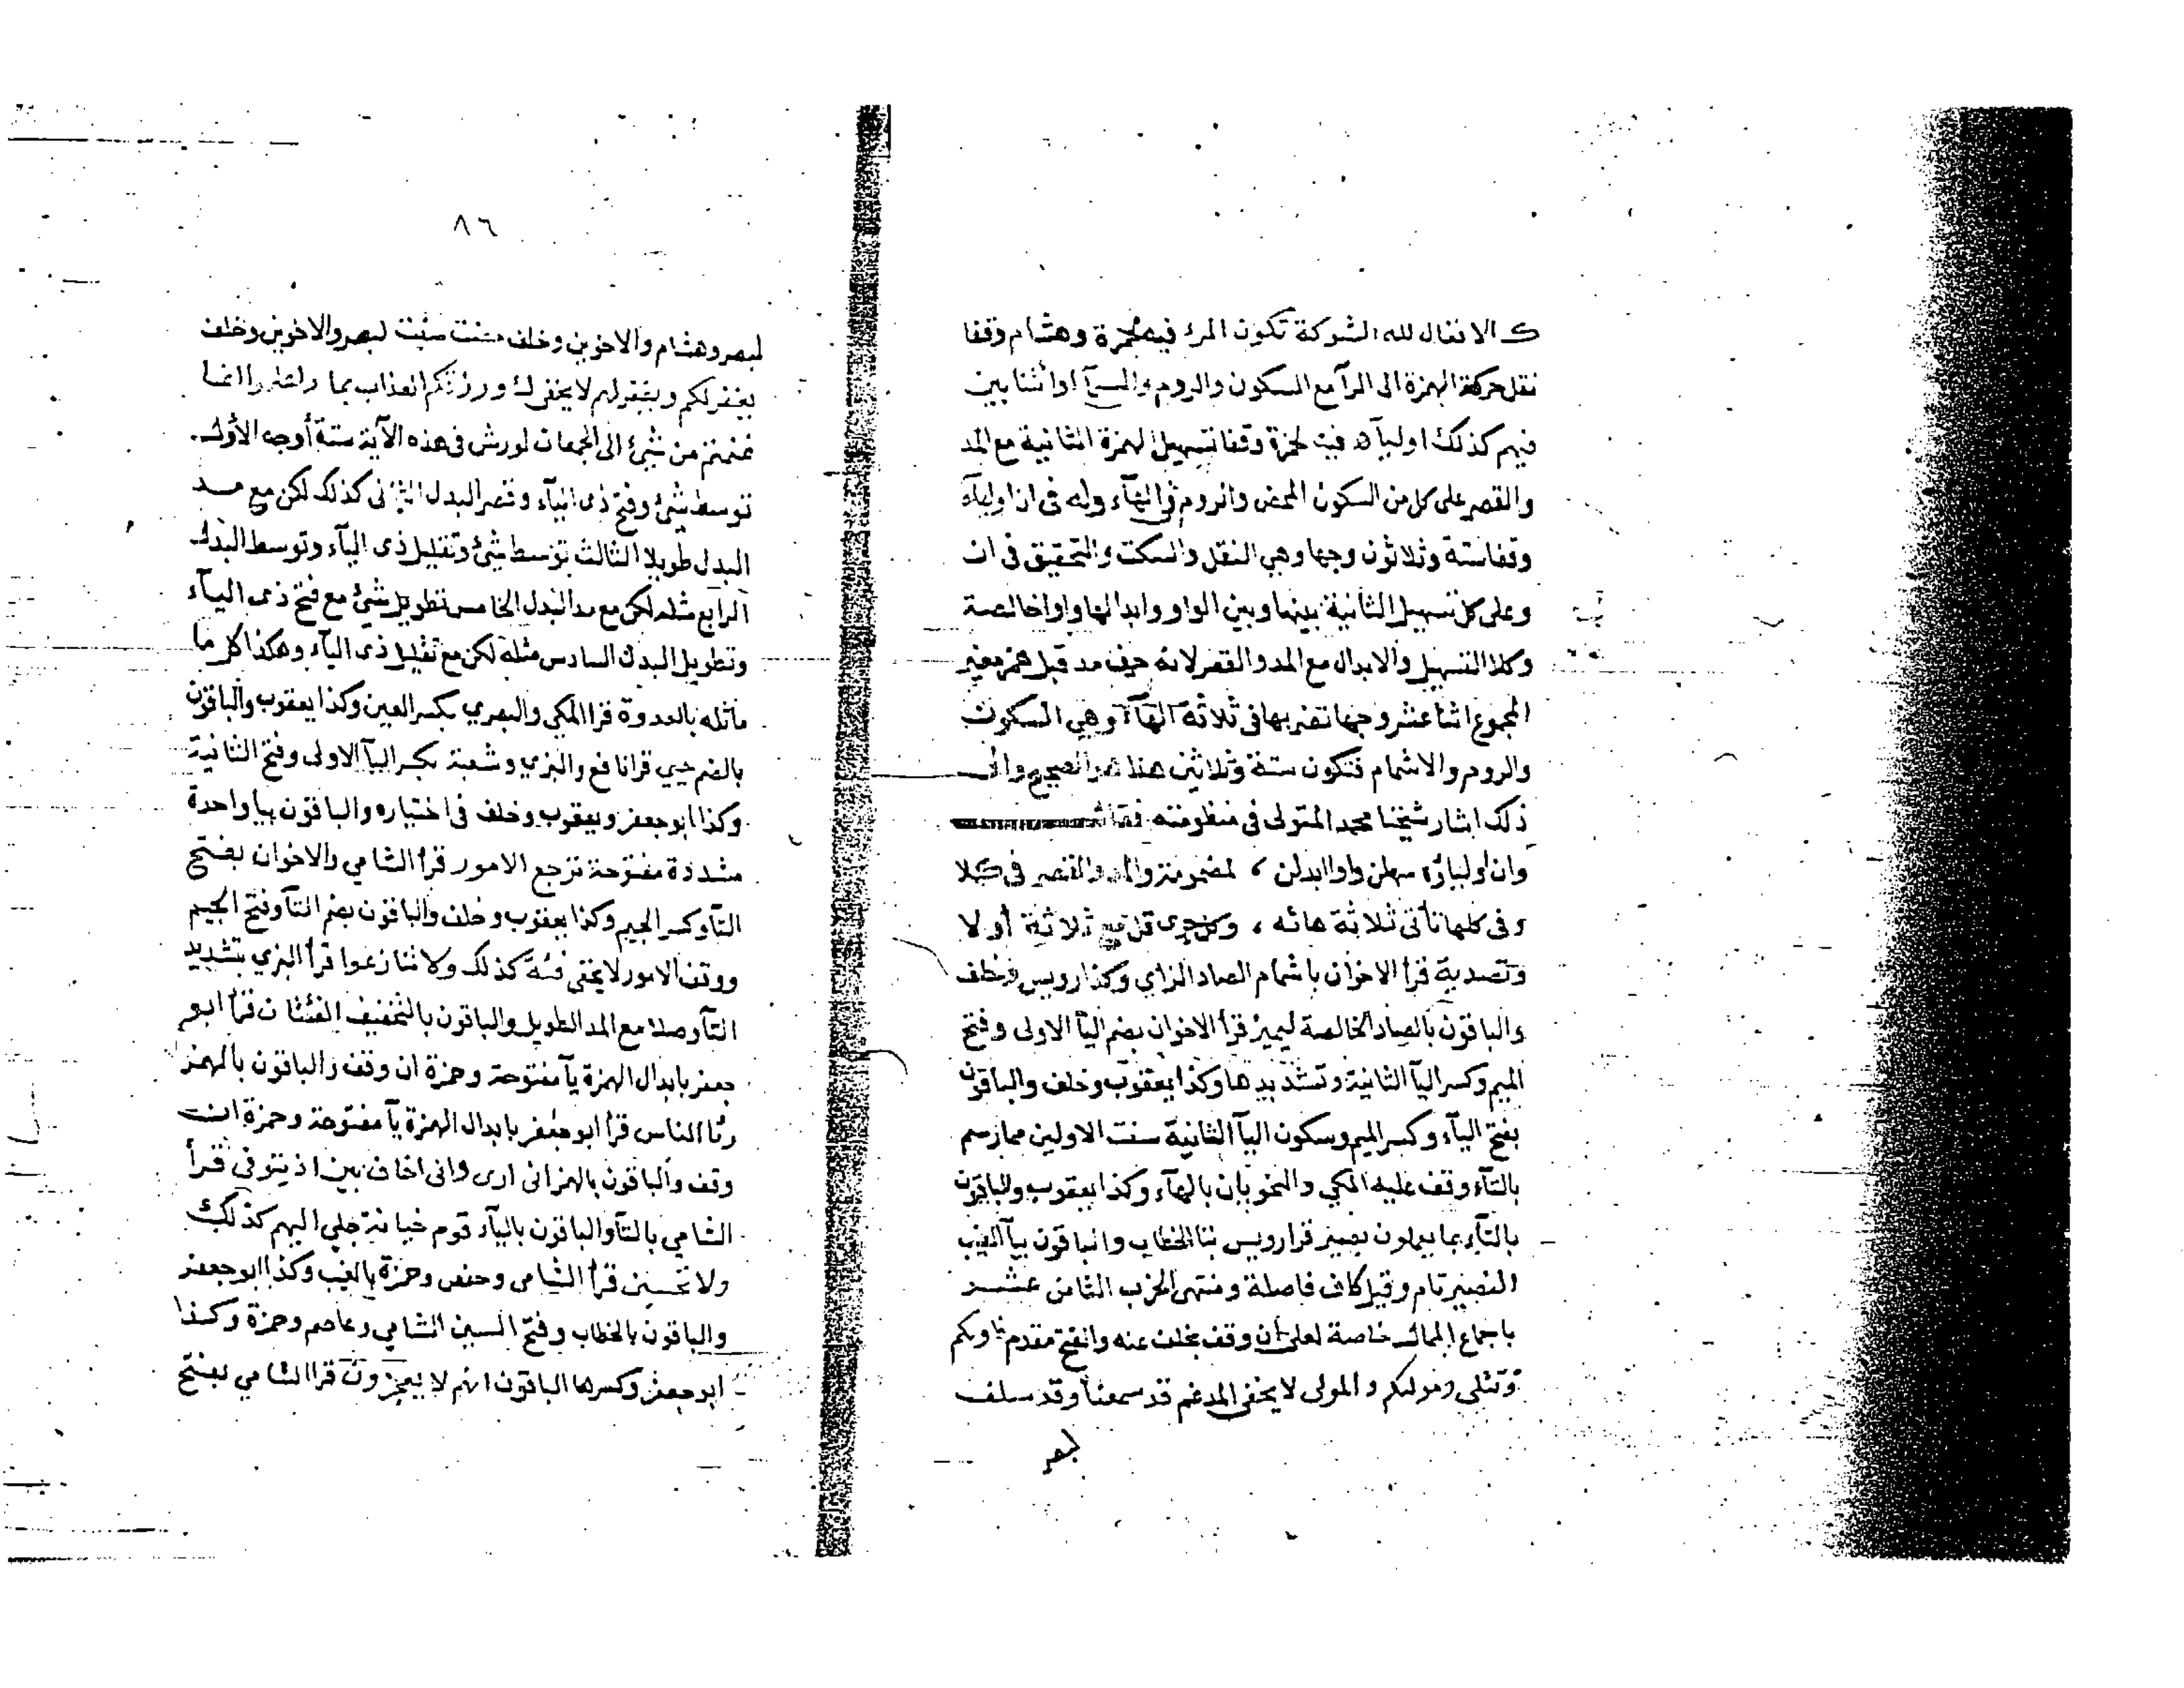 ك الانفال لله الشوكة تكون المرء فيه لحمزة وهشام وقفا
نقل حركة الهمزة الى الرآ مع السكون والروم والسمآ اوائتنا بين
فيهم كذلك اوليآؤه فيه لحمزة وقفا تسهيل الهمزة الثانية مع المد
والقصر على كل من السكون المحض والروم في الهآء وله في ان اوليآؤه
وقفا ستة وثلاثون وجها وهي النقل والسكت والتحقيق في ان
وعلى كل تسهيل الثانية بينها وبين الواو وابدالها واوا خالصة
وكلا التسهيل والابدال مع المد والقصر لانه حرف مد قبل همز مغير
المجموع اثنا عشر وجها تضربها في ثلاثة الهآء وهي السكون
والروم والاشمام فتكون ستة وثلاثين هذا هو الصحيح والى
ذلك اشار شيخنا محمد المتولى في منظومته فقال
وان اولياؤه سهلن واوا ابدلن ، لمضمومة والمد والقصر في كلا
وفي كلها تأتي ثلاثة هائه ، وكل جرى قل مع ثلاثة أولا
وتصدية قرأ الاخوان باشمام الصاد الزاي وكذا رويس وخلف
والباقون بالصاد الخالصة ليميز قرأ الاخوان بضم اليآ الاولى وفتح
الميم وكسر اليآ الثانية وتشديدها وكذا يعقوب وخلف والباقون
بفتح اليآء وكسر الميم وسكون اليآ الثانية سنت الاولين مما رسم
بالتآء وقف عليه المكي والنحويان بالهآء وكذا يعقوب والباقون
بالتآء بما يعملون بصير قرا رويس بتا الخطاب والباقون بيآ الغيب
النصير تام وقيل كاف فاصلة ومنتهى الحزب الثامن عشر
باجماع الممال خاصة لعلى ان وقف بخلف عنه والفتح مقدم ماويكم
وتتلى ومولكم والمولى لا يخفى المدغم قد سمعنا وقد سلف
لبصر
٨٦
لبصر وهشام والاخوين وخلف مضت سنت لبصر والاخوين وخلف
يغفر لكم ويغفر لهم لا يخفى لك ورزقكم العذاب بما واعلموا انما
غنمتم من شئ الى الجمعان لورش في هذه الآية ستة أوجه الأول
توسط شئ وفتح ذى اليآء وقصر البدل الثانى كذلك لكن مع مد
البدل طويلا الثالث توسط شئ وتقليل ذى اليآء وتوسط البدل
الرابع مثله لكن مع مد البدل الخامس تطويل شئ مع فتح ذى اليآء
وتطويل البدل السادس مثله لكن مع تقليل ذى اليآء وهكذا كل ما
ماثله بالعدوة قرا المكي والبصري بكسر العين وكذا يعقوب والباقون
بالضم حيي قرا نافع والبزي وشعبة بكسر اليآ الاولى وفتح الثانية
وكذا ابو جعفر ويعقوب وخلف في اختياره والباقون بيا واحدة
مشددة مفتوحة ترجع الامور قرأ الشامي والاخوان بفتح
التآ وكسر الجيم وكذا يعقوب وخلف والباقون بضم التآ وفتح الجيم
ووقف الامور لا يخفى فئة كذلك ولا تنازعوا قرأ البزي بتشديد
التآ وصلا مع المد الطويل والباقون بالتخفيف الفئتان قرأ ابو
جعفر بابدال الهمزة يآ مفتوحة وحمزة ان وقف والباقون بالهمز
رئا الناس قرأ ابو جعفر بابدال الهمزة يآ مفتوحة وحمزة ان
وقف والباقون بالهمز انى ارى وانى اخاف بين اذ يتوفى قرأ
الشامي بالتآ والباقون باليآء قوم خيانة جلي اليهم كذلك
ولا تحسبن قرأ الشامى وحفص وحمزة بالغيب وكذا ابو جعفر
والباقون بالخطاب وفتح السين الشامي وعاصم وحمزة وكذا
ابو جعفر وكسرها الباقون انهم لا يعجزون قرا الشامي بفتح